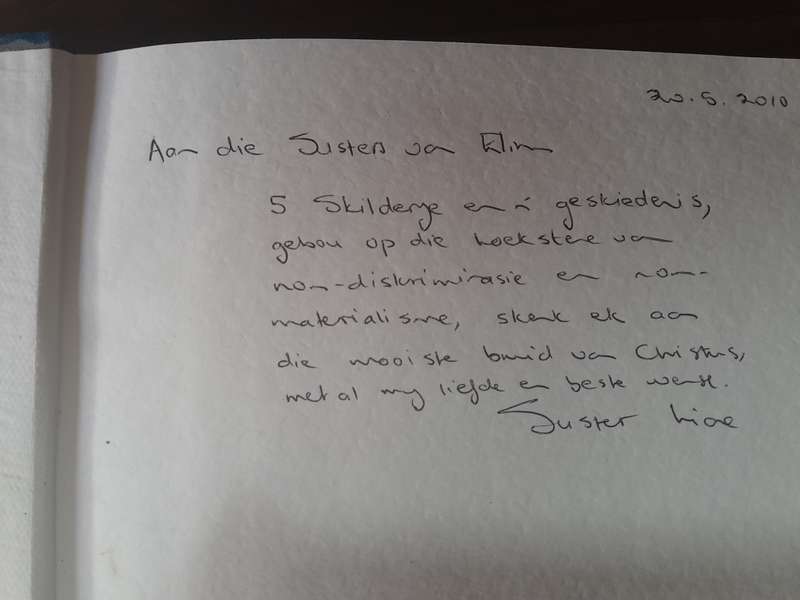 20.5.2010
Aan die Susters van Elim
5 Skilderye en 'n geskiedenis,
gebou op die hoekstene van
non-diskriminasie en non-
materialisme, skenk ek aan
die mooiste bruid van Christus,
met al my liefde en beste wense.
Suster